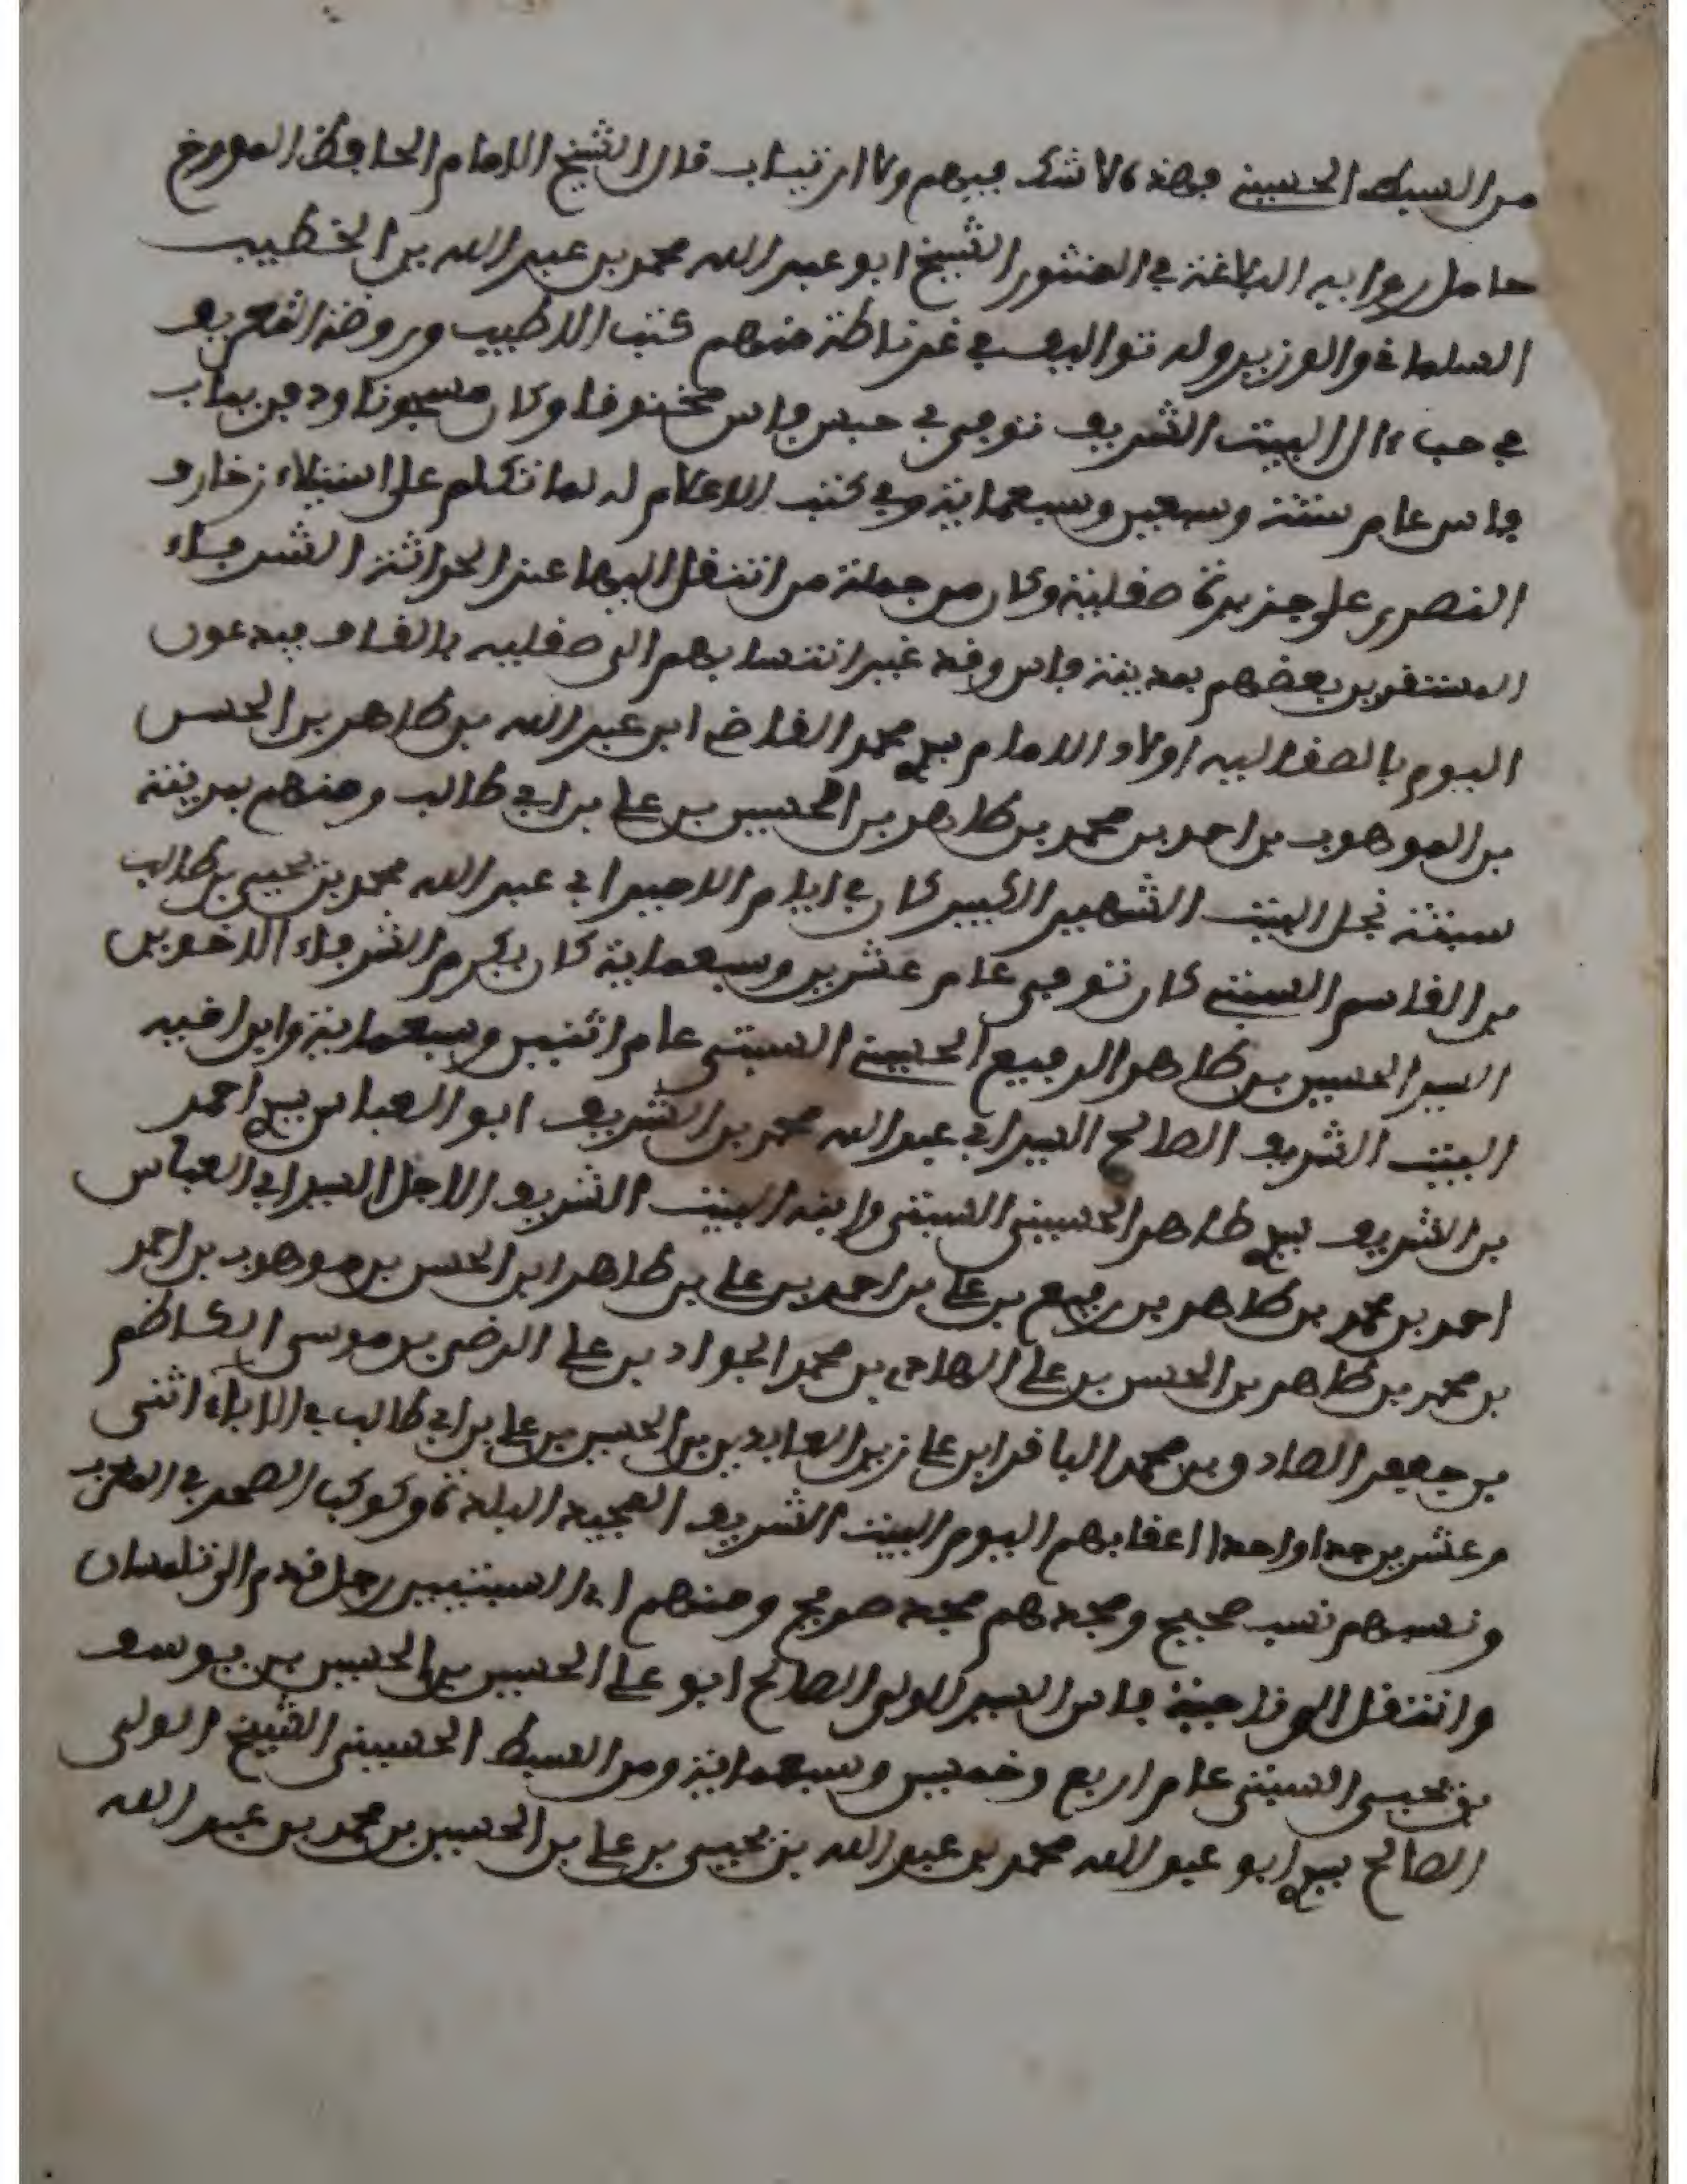 من السبط الحسيني فهذه لا شك فيهم ولا ارتياب قال الشيخ الامام الحافظ المورخ
حامل رواية البلاغة في المنثور الشيخ ابو عبد الله محمد بن عبد الله بن الخطيب
السلماني والوزير وله تواليف في غرناطة منهم كتب الاطبيب وروضة التعريف
في حب ءال البيت الشريف توفي في حبس فاس مخنوقا وكان مسجونا ودفن بباب
فاس عام ستة وسبعين وسبعماية وفي كتب الاعلام له لما تكلم على استيلاء
النصرى على جزيرة صقلية وكان من جملة من انتقل اليها عند الحراثة الشرفاء
المستقرين بعضهم بمدينة فاس وقد غير انتسابهم الى صقلية بالقاف فيدعون
اليوم بالصقاليه اولاد الامام سي محمد القاضي ابن عبد الله بن طاهر بن الحسن
بن الموهوب بن احمد بن محمد بن طاهر بن الحسين بن علي بن ابي طالب ومنهم بمدينة
سبتة نجل البيت الشهير الكبير كان في ايام الامير ابي عبد الله محمد بن يحيى بن طالب
بن القاسم السبتي كان توفي عام عشرين وسبعماية كان يكرم الشرفاء الاخوين
السيد الحسين بن طاهر الرفيع الحسيني السبتي عام اثنين وسبعماية وابن اخيه
البيت الشريف الصالح السيد ابي عبد الله محمد بن الشريف ابو العباس سي احمد
بن الشريف سي طاهر الحسيني السبتي وابنه البيت الشريف الاجل السيد ابي العباس
احمد بن محمد بن طاهر بن رفيع بن علي بن احمد بن علي بن طاهر ابن الحسن بن موهوب بن احمد
بن محمد بن طاهر بن الحسن بن علي الهادي بن محمد الجواد بن علي الرضى بن موسى الكاظم
بن جعفر الصادق بن محمد الباقر ابن علي زين العابدين بن الحسين بن علي بن ابي طالب في الاباء اثنى
وعشرين جدا واحدا اعقابهم اليوم البيت الشريف العجيبه البلدة وكوكب الصحر في المغرب
ونسبهم نسب صحيح ومجدهم مجد صريح ومنهم السبتيين رجل قدم الى تلمسان
وانتقل الى ناحية فاس السيد الولي الصالح ابو علي الحسين بن الحسين بن يوسف
بن يحيى السبتي عام اربع وخمسين وسبعماية ومن السبط الحسيني الشيخ الولي
الصالح سي ابو عبد الله محمد بن عبد الله بن يحيى بن علي بن الحسين بن محمد بن عبد الله